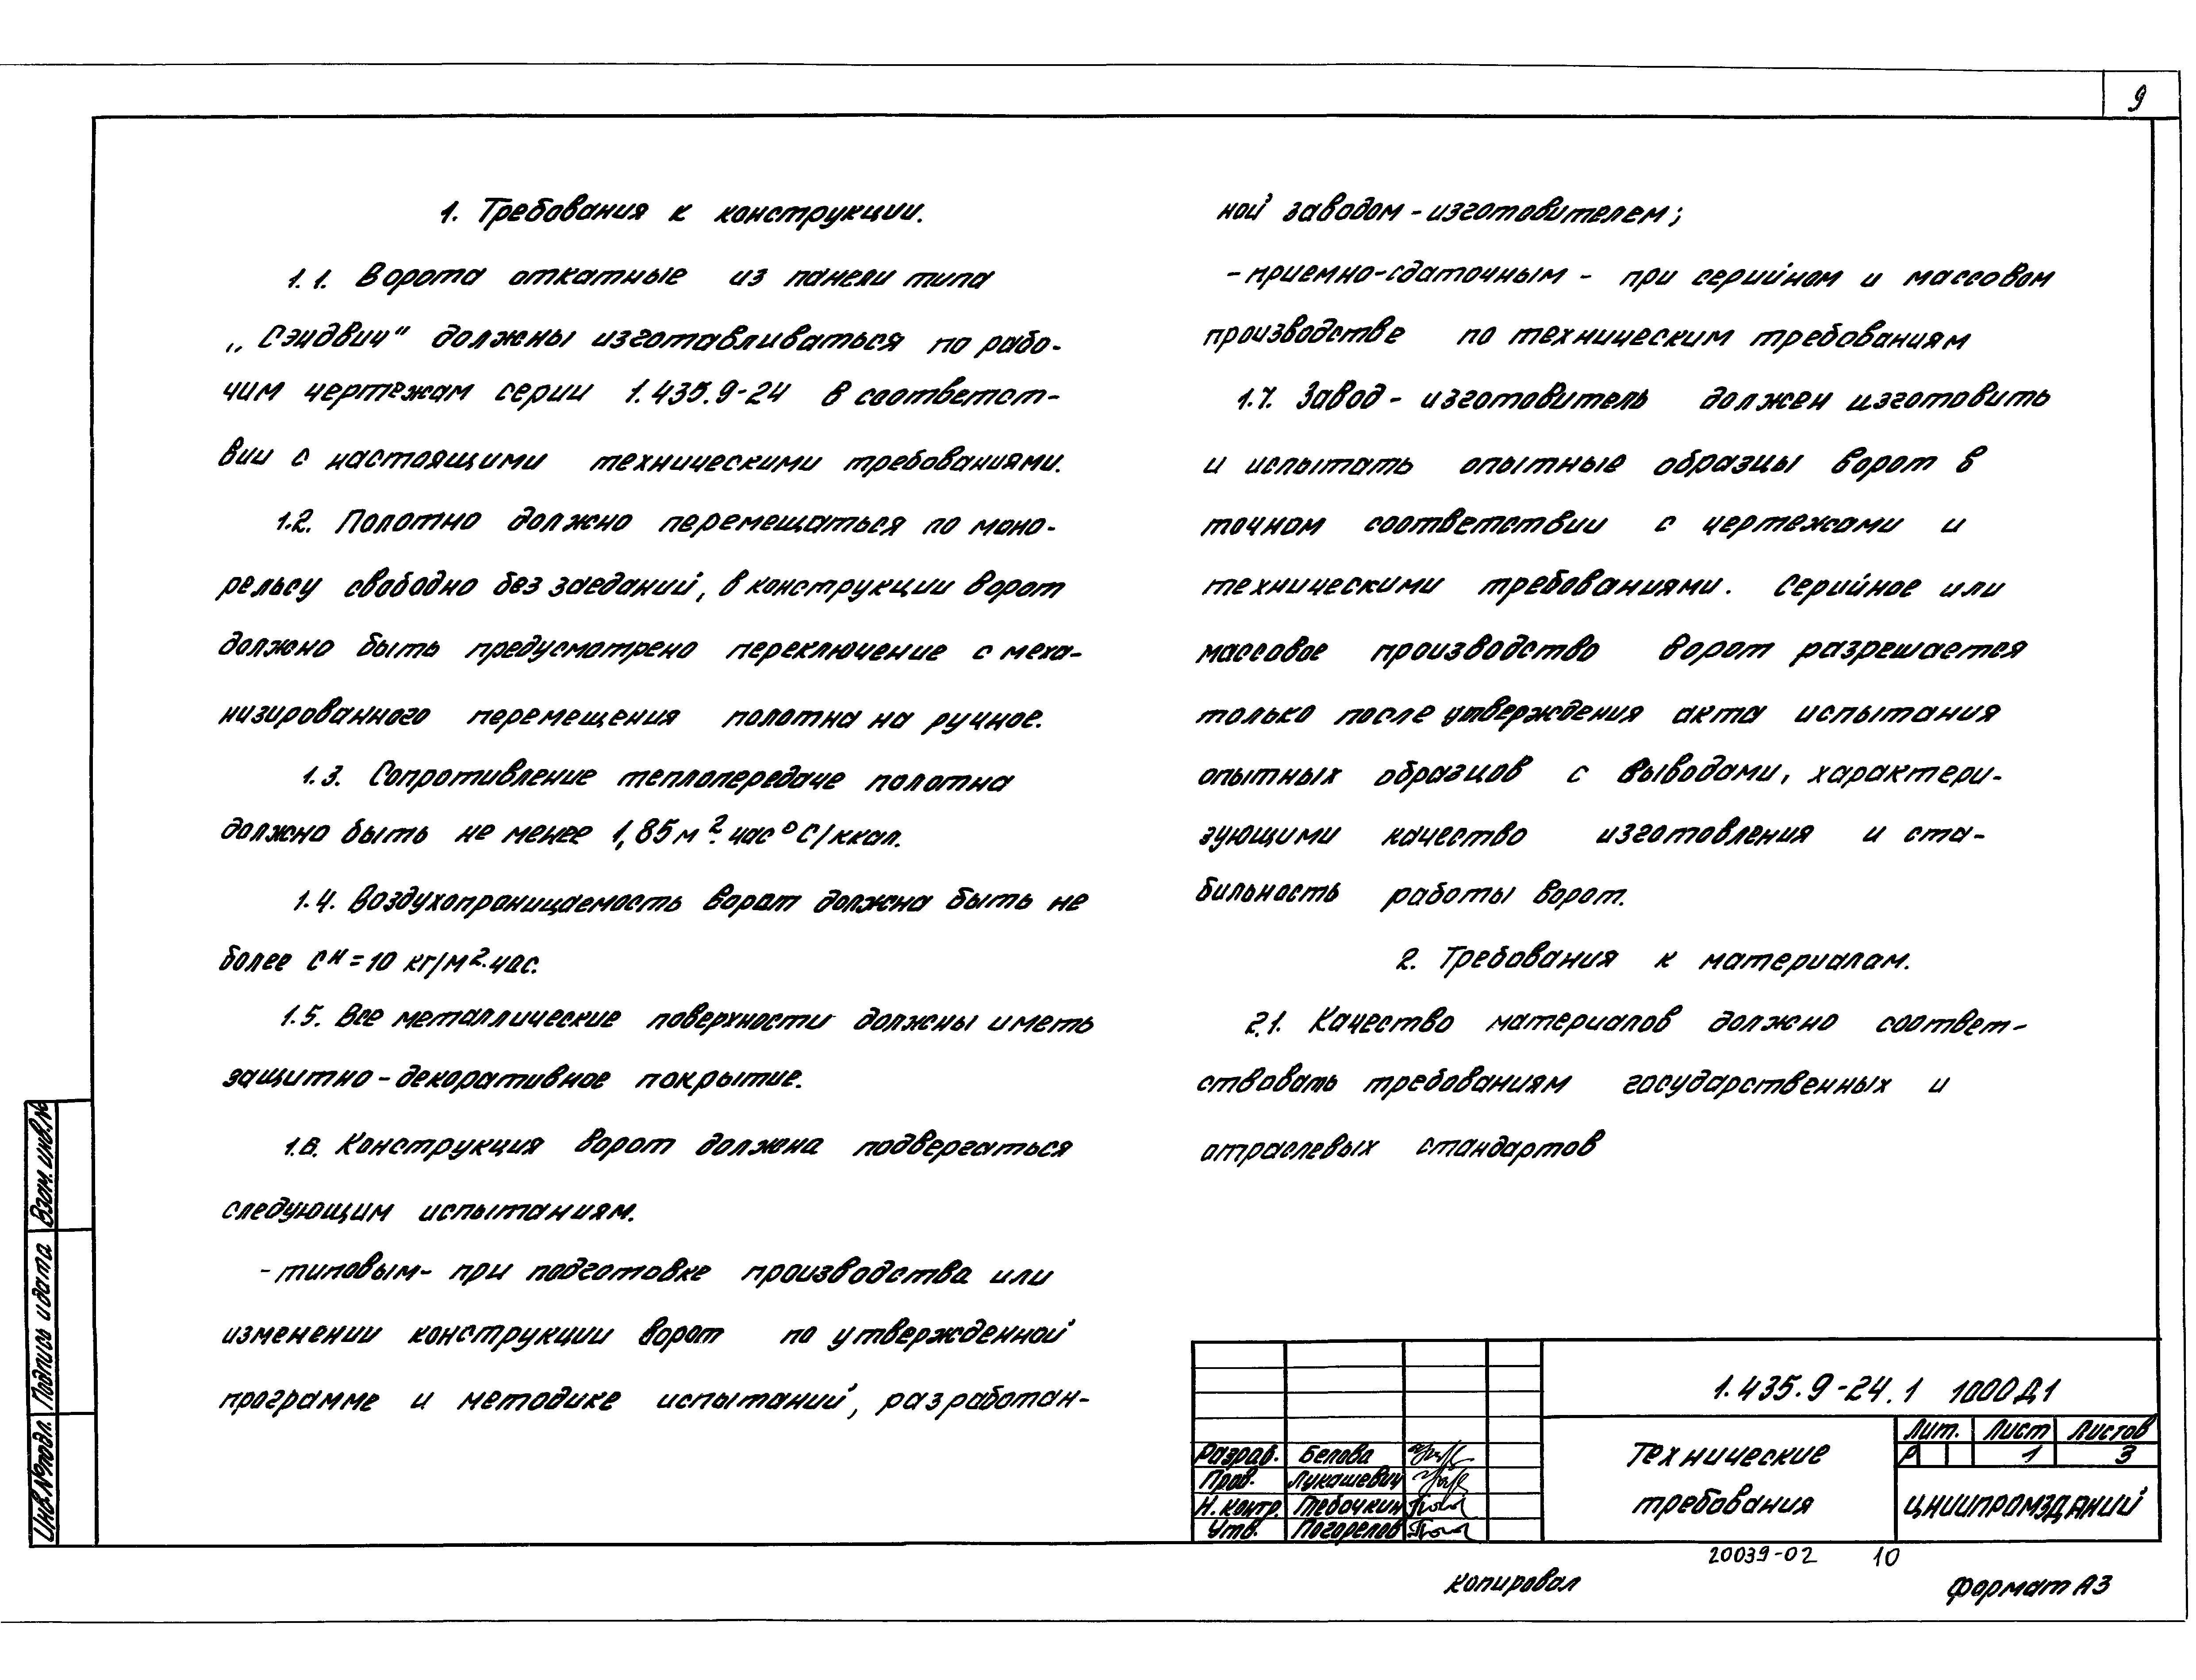 9
1. Требования к конструкции.
1.1. Ворота откатные из панели типа
„Сэндвич“ должны изготавливаться по рабо-
чим чертежам серии 1.435.9-24 в соответст-
вии с настоящими техническими требованиями.
1.2. Полотно должно перемещаться по моно-
рельсу свободно без заеданий, в конструкции ворот
должно быть предусмотрено переключение с меха-
низированного перемещения полотна на ручное.
1.3. Сопротивление теплопередаче полотна
должно быть не менее 1,85 м².час°С/ккал.
1.4. Воздухопроницаемость ворот должна быть не
более Сн=10 кг/м².час.
1.5. Все металлические поверхности должны иметь
защитно-декоративное покрытие.
1.6. Конструкция ворот должна подвергаться
следующим испытаниям.
-типовым- при подготовке производства или
изменении конструкции ворот по утвержденной
программе и методике испытаний, разработан-
ной заводом-изготовителем;
-приемно-сдаточным- при серийном и массовом
производстве по техническим требованиям
1.7. Завод-изготовитель должен изготовить
и испытать опытные образцы ворот в
точном соответствии с чертежами и
техническими требованиями. Серийное или
массовое производство ворот разрешается
только после утверждения акта испытания
опытных образцов с выводами, характери-
зующими качество изготовления и ста-
бильность работы ворот.
2. Требования к материалам.
2.1. Качество материалов должно соответ-
ствовать требованиям государственных и
отраслевых стандартов
Взам. инв.№
Подпись и дата
Инв.№подл.
1.435.9-24.1 1000Д1
Разраб. Белова
Пров. Лукашевич
Н.контр. Тевочкин
Утв. Погорелов
Технические
требования
Лит. Лист Листов
Р 1 3
ЦНИИПРОМЗДАНИЙ
20039-02 10
Копировал
Формат А3